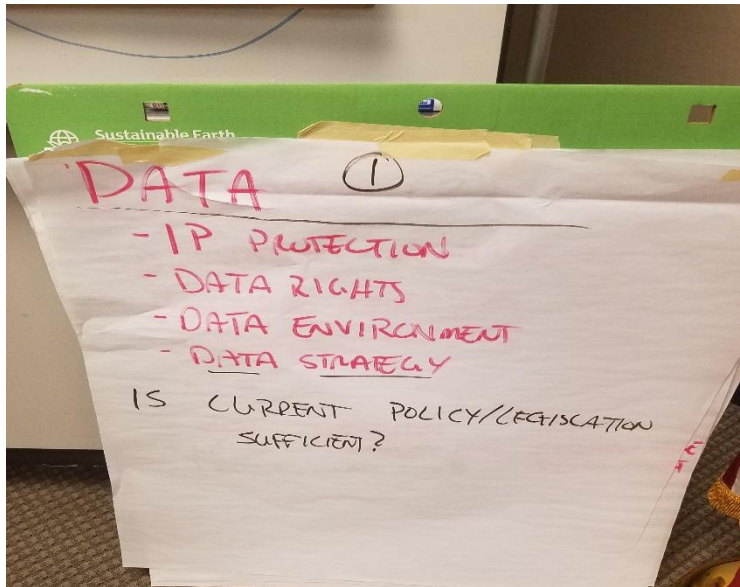 Sustainable Earth
DATA
1
- IP PROTECTION
- DATA RIGHTS
- DATA ENVIRONMENT
- DATA STRATEGY
IS CURRENT POLICY/LEGISLATION
SUFFICIENT?